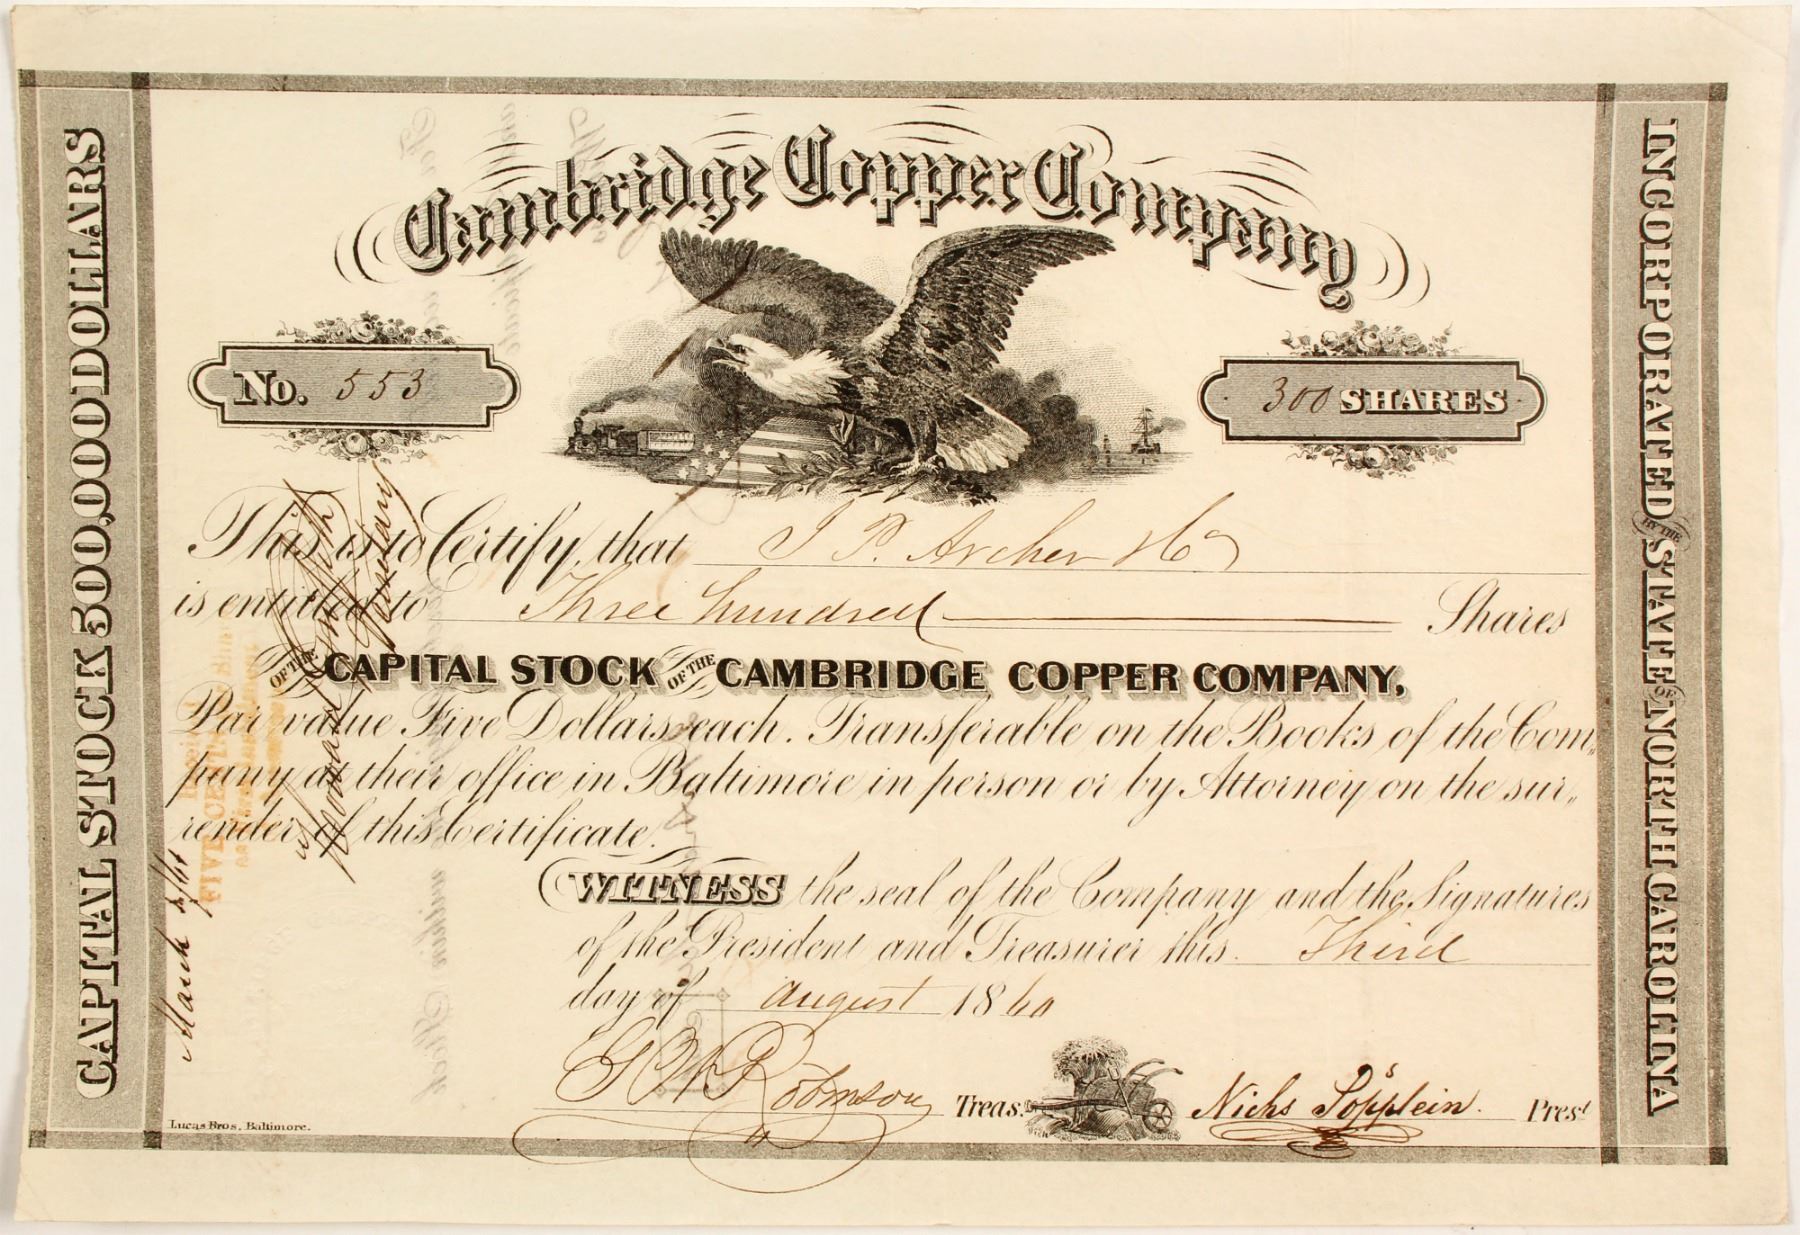 Cambridge Copper Company
No. 553
300 SHARES
This is to Certify, that J P. Archer & Co
is entitled to Three hundred Shares
OF THE CAPITAL STOCK OF THE CAMBRIDGE COPPER COMPANY,
Par value Five Dollars each. Transferable on the Books of the Com,,
pany at their office in Baltimore in person or by Attorney on the sur,,
render of this Certificate.
WITNESS the seal of the Company and the Signatures
of the President and Treasurer this Third
day of August 1860
Robinson Treas.
Nichs Popplein. Prest
Lucas Bros. Baltimore.
CAPITAL STOCK 500,000 DOLLARS
INCORPORATED BY THE STATE OF NORTH CAROLINA
March
FIVE CE